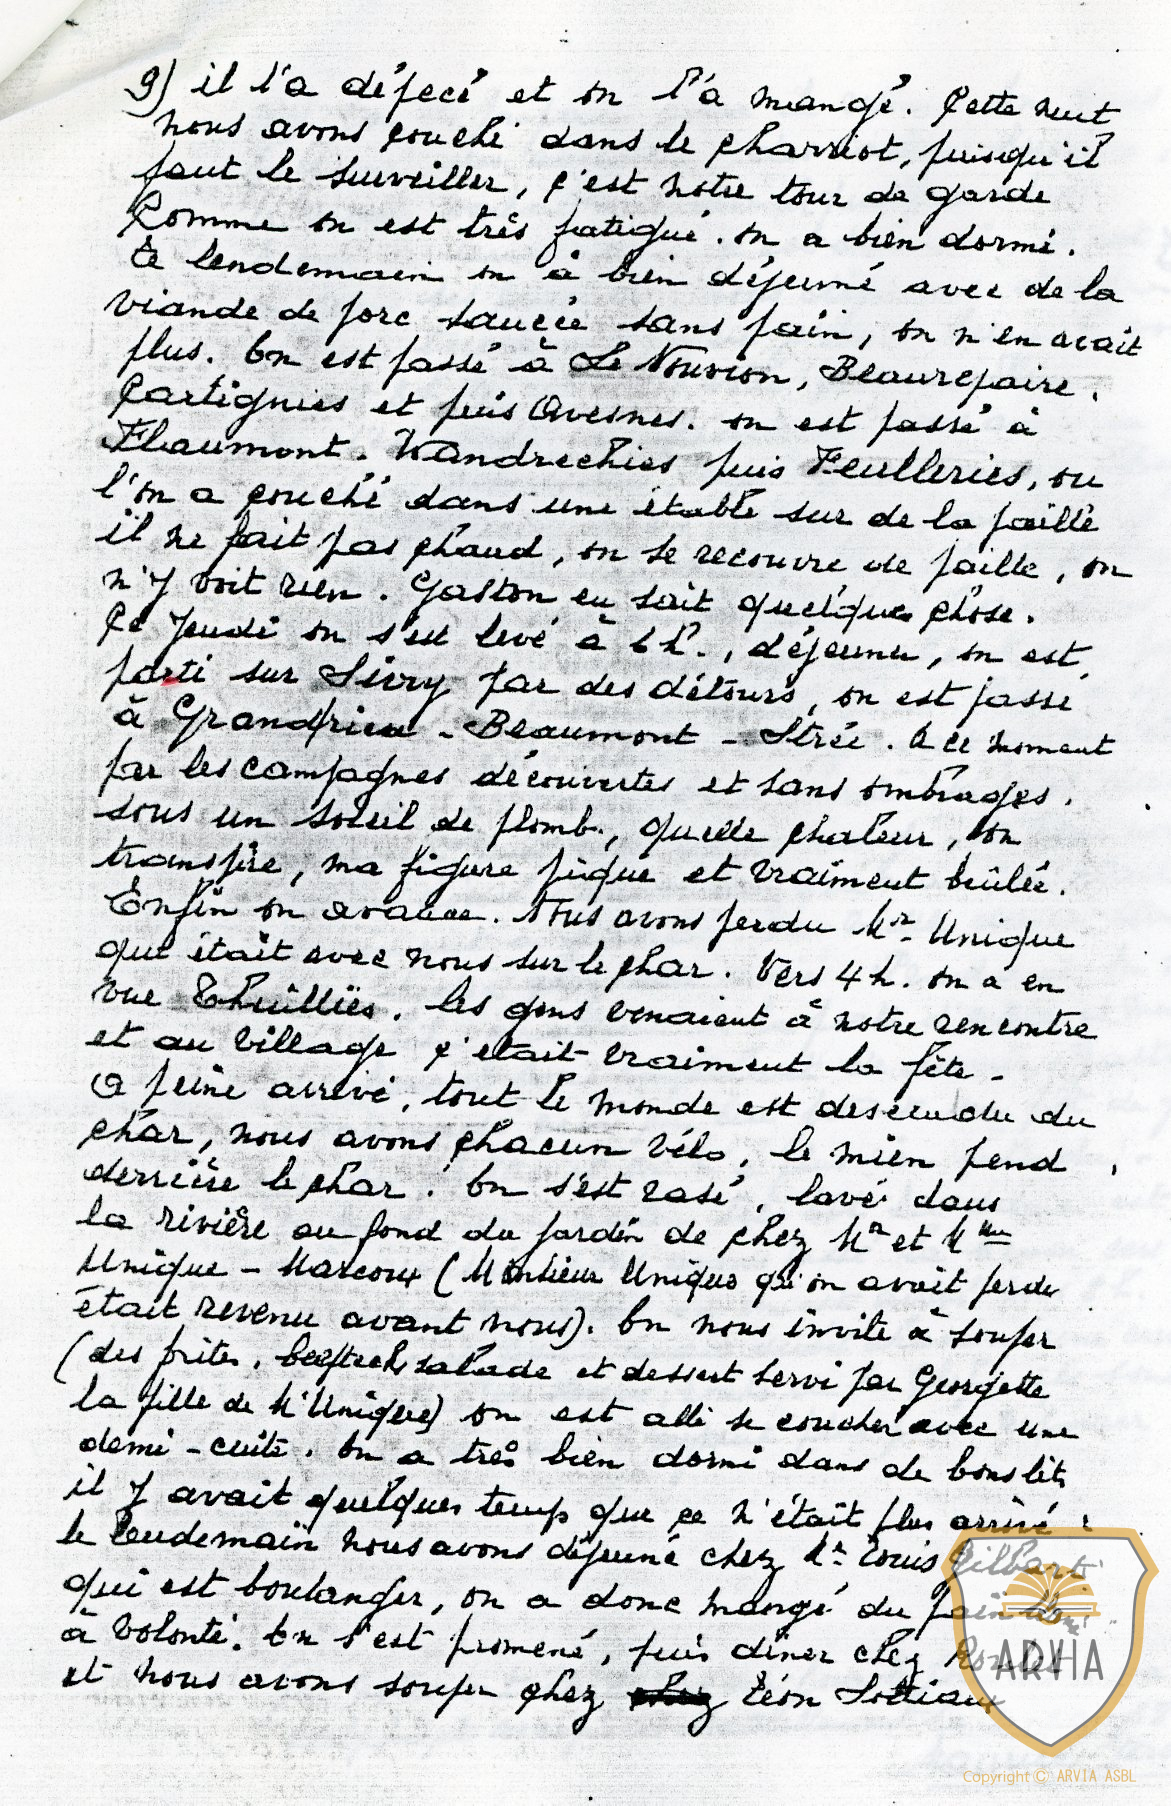 9) il l'a dépecé et on l'a mangé. Cette nuit
nous avons couché dans le charriot, puisqu'il
faut le surveiller, c'est notre tour de garde
Comme on est très fatigué. on a bien dormi.
Le lendemain on a bien déjeuné avec de la
viande de porc saucée sans pain, on n'en avait
plus. On est passé à Le Nouvion, Beaurepaire.
Cartignies et puis Avesnes. on est passé à
Flaumont. Wandrechies puis Feulleries, ou
l'on a couché dans une étable sur de la paille
il ne fait pas chaud, on se recouvre de paille, on
n'y voit rien. Gaston en sait quelque chose.
Ce Jeudi on s'est levé à 6 h., déjeuner, on est
parti sur Sivry par des détours, on est passé
à Grandrieu - Beaumont - Strée. A ce moment
par les campagnes découvertes et sans ombrages.
sous un soleil de plomb, quelle chaleur, on
transpire, ma figure pique et vraiment brûlée.
Enfin on avance. Nous avons perdu Mr Unique
qui était avec nous sur le char. Vers 4 h. on a en
vue Thuillies. les gens venaient à notre rencontre
et au village c'était vraiment la fête -
A peine arrivé, tout le monde est descendu du
char, nous avons chacun vélo, le mien pend
derrière le char. On s'est rasé, lavé dans
la rivière au fond du jardin de chez Mr et Mme
Unique - Marcoux (Monsieur Unique qu'on avait perdu
était revenu avant nous). On nous invite à souper
(des frites, beefteack salade et dessert servi par Georgette
la fille de M'Unique) on est allé se coucher avec une
demi-cuite. On a très bien dormi dans de bons lits
il y avait quelques temps que ce n'était plus arrivé :
le lendemain nous avons déjeuné chez Mr Louis Gilbart
qui est boulanger, on a donc mangé du pain
à volonté. On s'est promené, puis dîner chez
et nous avons souper chez Léon Sottiaux
ARVIA
Copyright © ARVIA ASBL